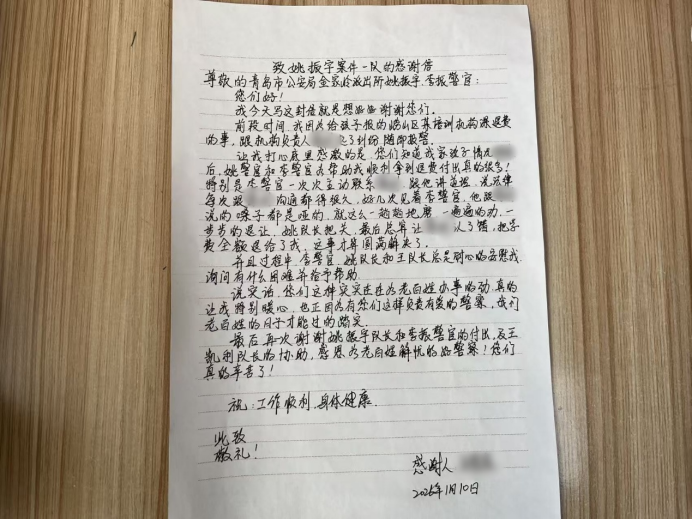 致姚振宇案件一队的感谢信
尊敬的青岛市公安局金家岭派出所姚振宇、李振警官:
您们好!
我今天写这封信就是想好好谢谢您们。
前段时间,我因为给孩子报的崂山区某培训机构课退费
的事,跟机构负责人 起了纠纷随即报警。
让我打心底里感激的是,您们知道我家孩子情况
后,姚警官和李警官为帮助我顺利拿到退费付出真的很多!
特别是李警官一次次主动联系 跟他讲道理,说法律
每次跟 沟通都得很久,好几次见着李警官,他跟
说的嗓子都是哑的,就这么一趟趟地磨 一遍遍的劝,一
步步的退让!姚队长把关,最后总算让 认了错,把学
费全额退给了我,这事才算圆满解决了。
并且过程中,李警官、姚队长和王队长总是耐心的安慰我,
询问有什么困难并给予帮助。
说实话,您们这样实实在在为老百姓办事的劲,真的
让我特别暖心,也正因为有您们这样负责有爱的警察,我们
老百姓的日子才能过的踏实。
最后再次谢谢姚振宇队长和李振警官的付出,及王
凯利队长的协助,感恩为老百姓解忧的好警察!您们
真的辛苦了!
祝:工作顺利,身体健康.
此致
敬礼!
感谢人
2026年1月10日